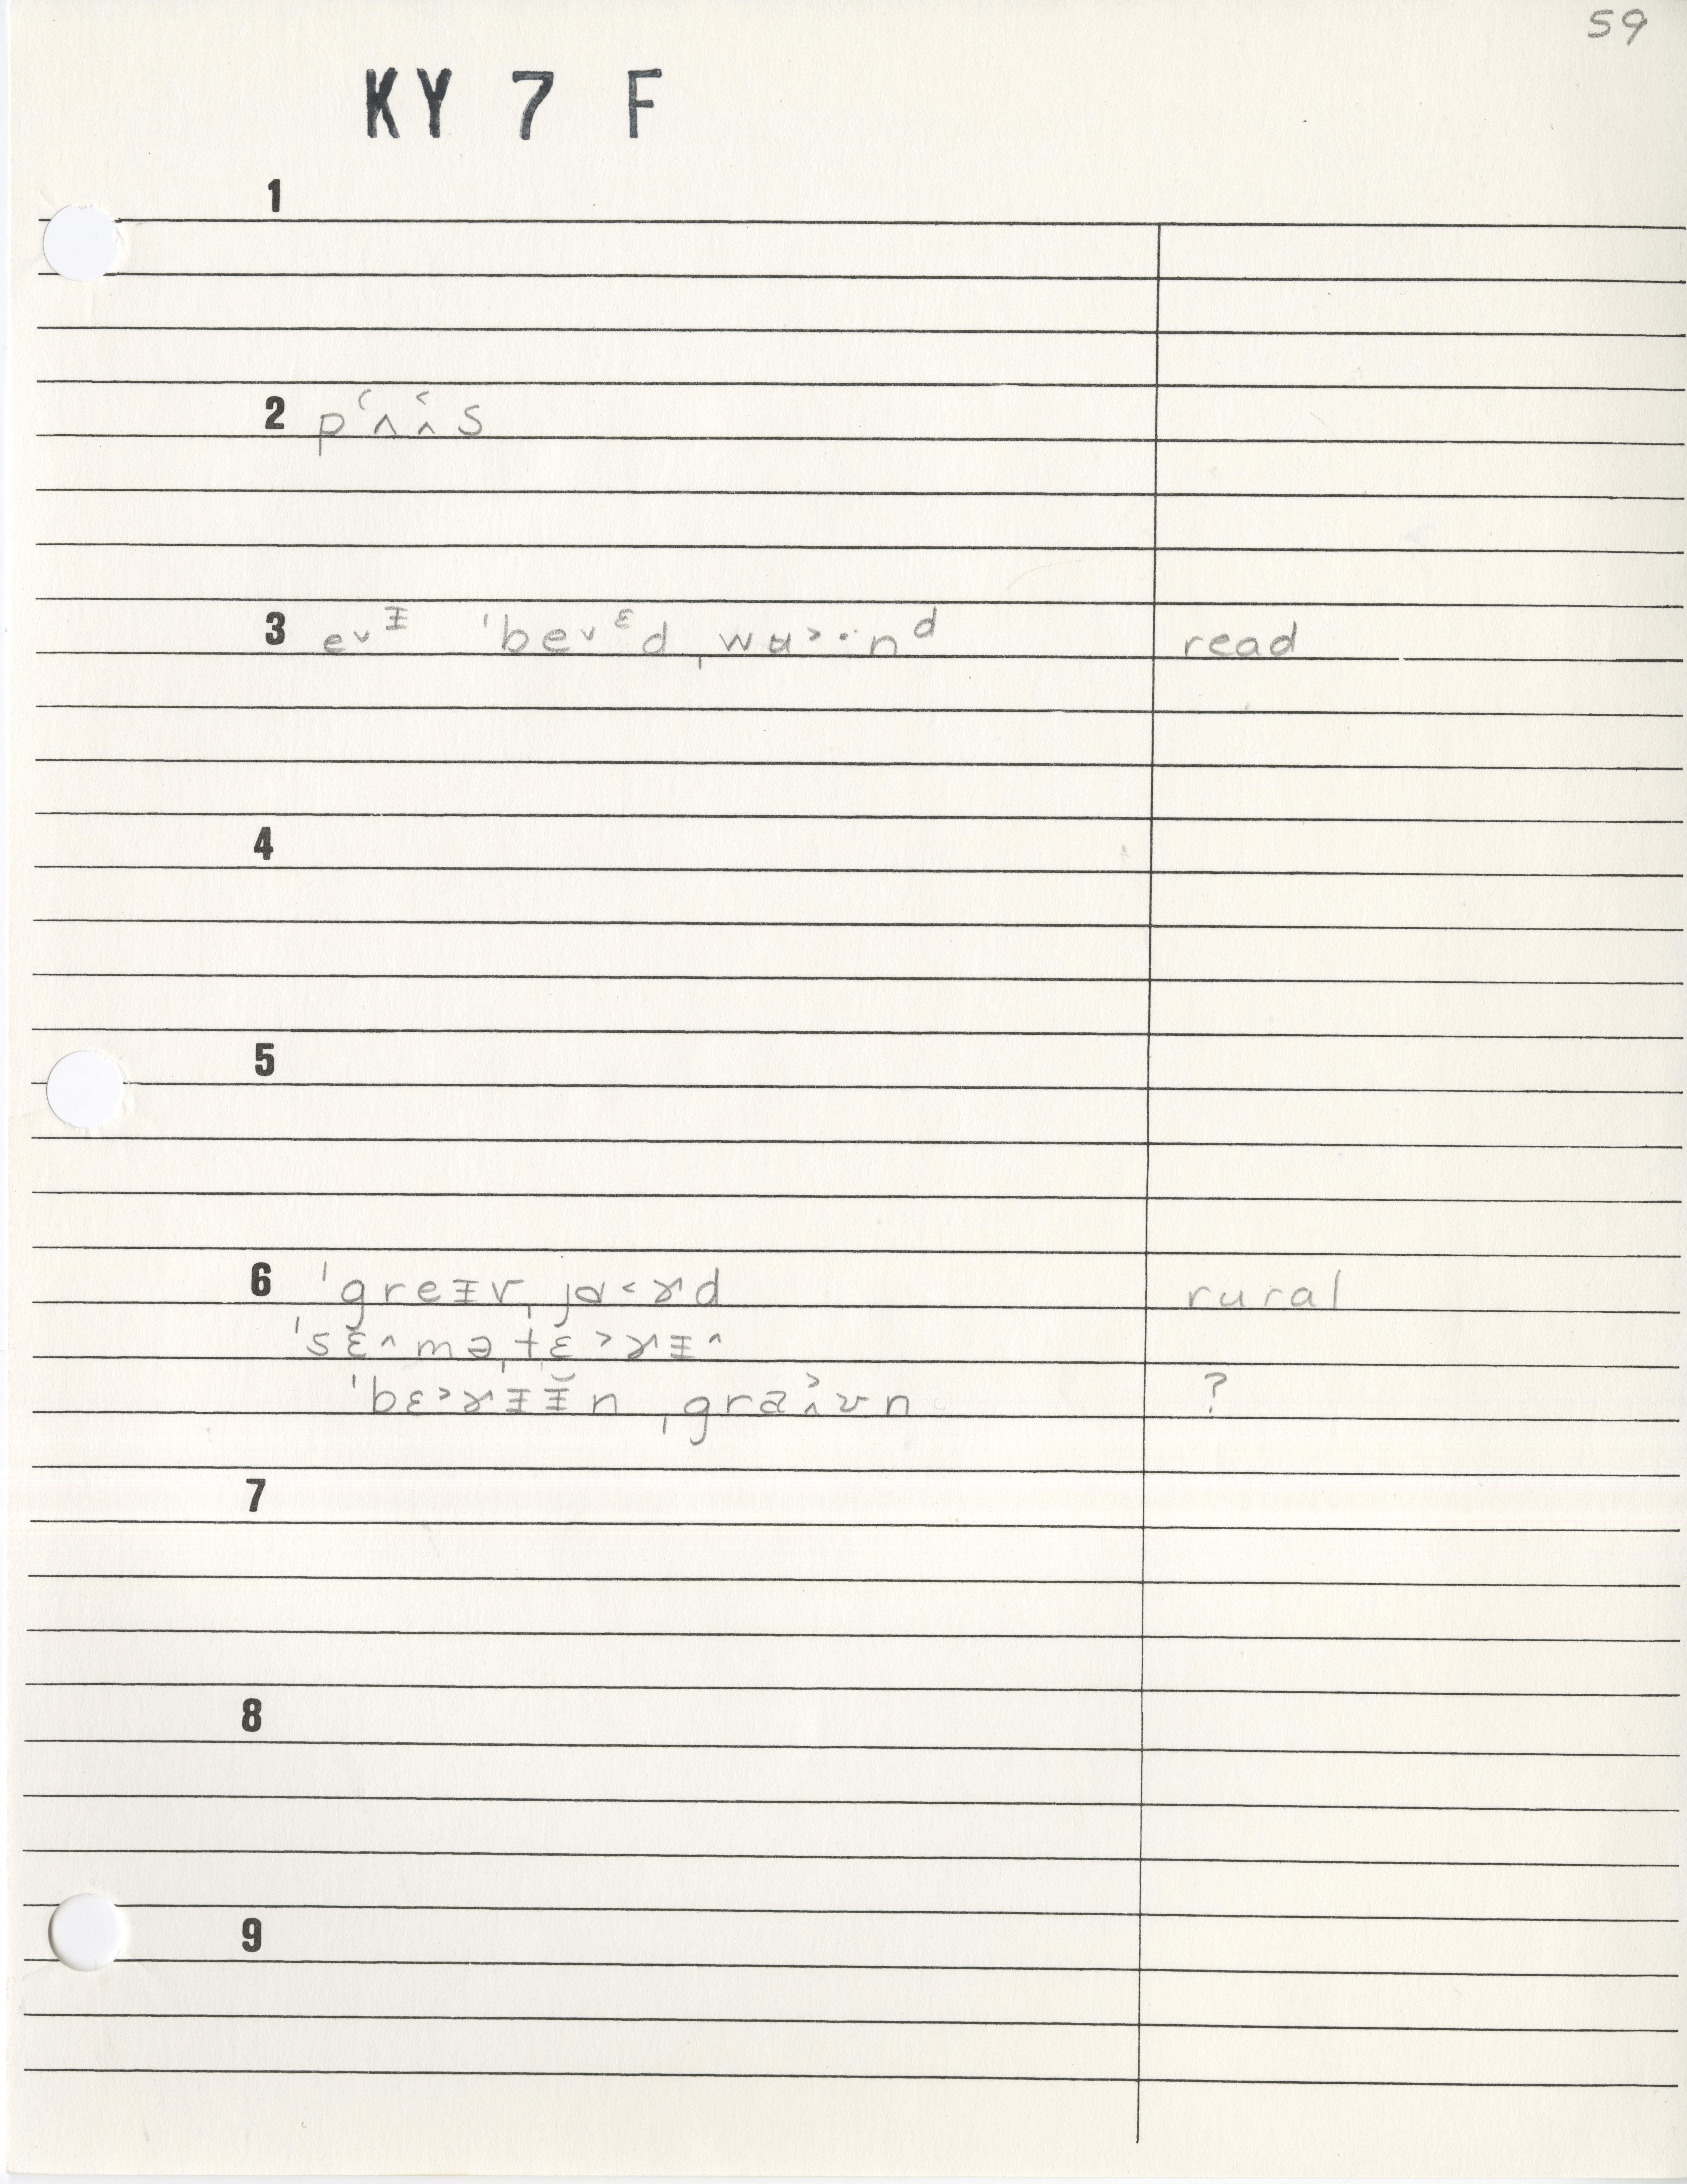 59
KY 7 F
1
2 pʻʌʌ̂˂s
3 e˅ᵻ ˈbe˅ᵋd ˌwʉ˃··nᵈ read
4
5
6 ˈgreᵻvˌjɑ˂ɤd rural
ˈsɛ˄məˌtɛ˃ɤᵻ˄
ˈbɛ˃ɤᵻᵻ̆n ˌgra˄˃ʊn ?
7
8
9